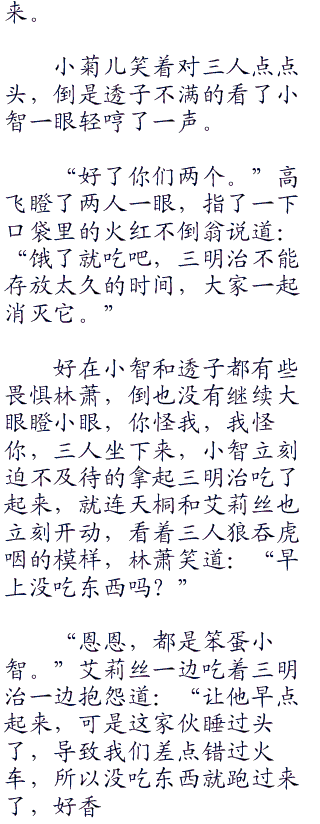 来。
小菊儿笑着对三人点点
头，倒是透子不满的看了小
智一眼轻哼了一声。
“好了你们两个。”高
飞瞪了两人一眼，指了一下
口袋里的火红不倒翁说道：
“饿了就吃吧，三明治不能
存放太久的时间，大家一起
消灭它。”
好在小智和透子都有些
畏惧林萧，倒也没有继续大
眼瞪小眼，你怪我，我怪
你，三人坐下来，小智立刻
迫不及待的拿起三明治吃了
起来，就连天桐和艾莉丝也
立刻开动，看着三人狼吞虎
咽的模样，林萧笑道：“早
上没吃东西吗？”
“恩恩，都是笨蛋小
智。”艾莉丝一边吃着三明
治一边抱怨道：“让他早点
起来，可是这家伙睡过头
了，导致我们差点错过火
车，所以没吃东西就跑过来
了，好香